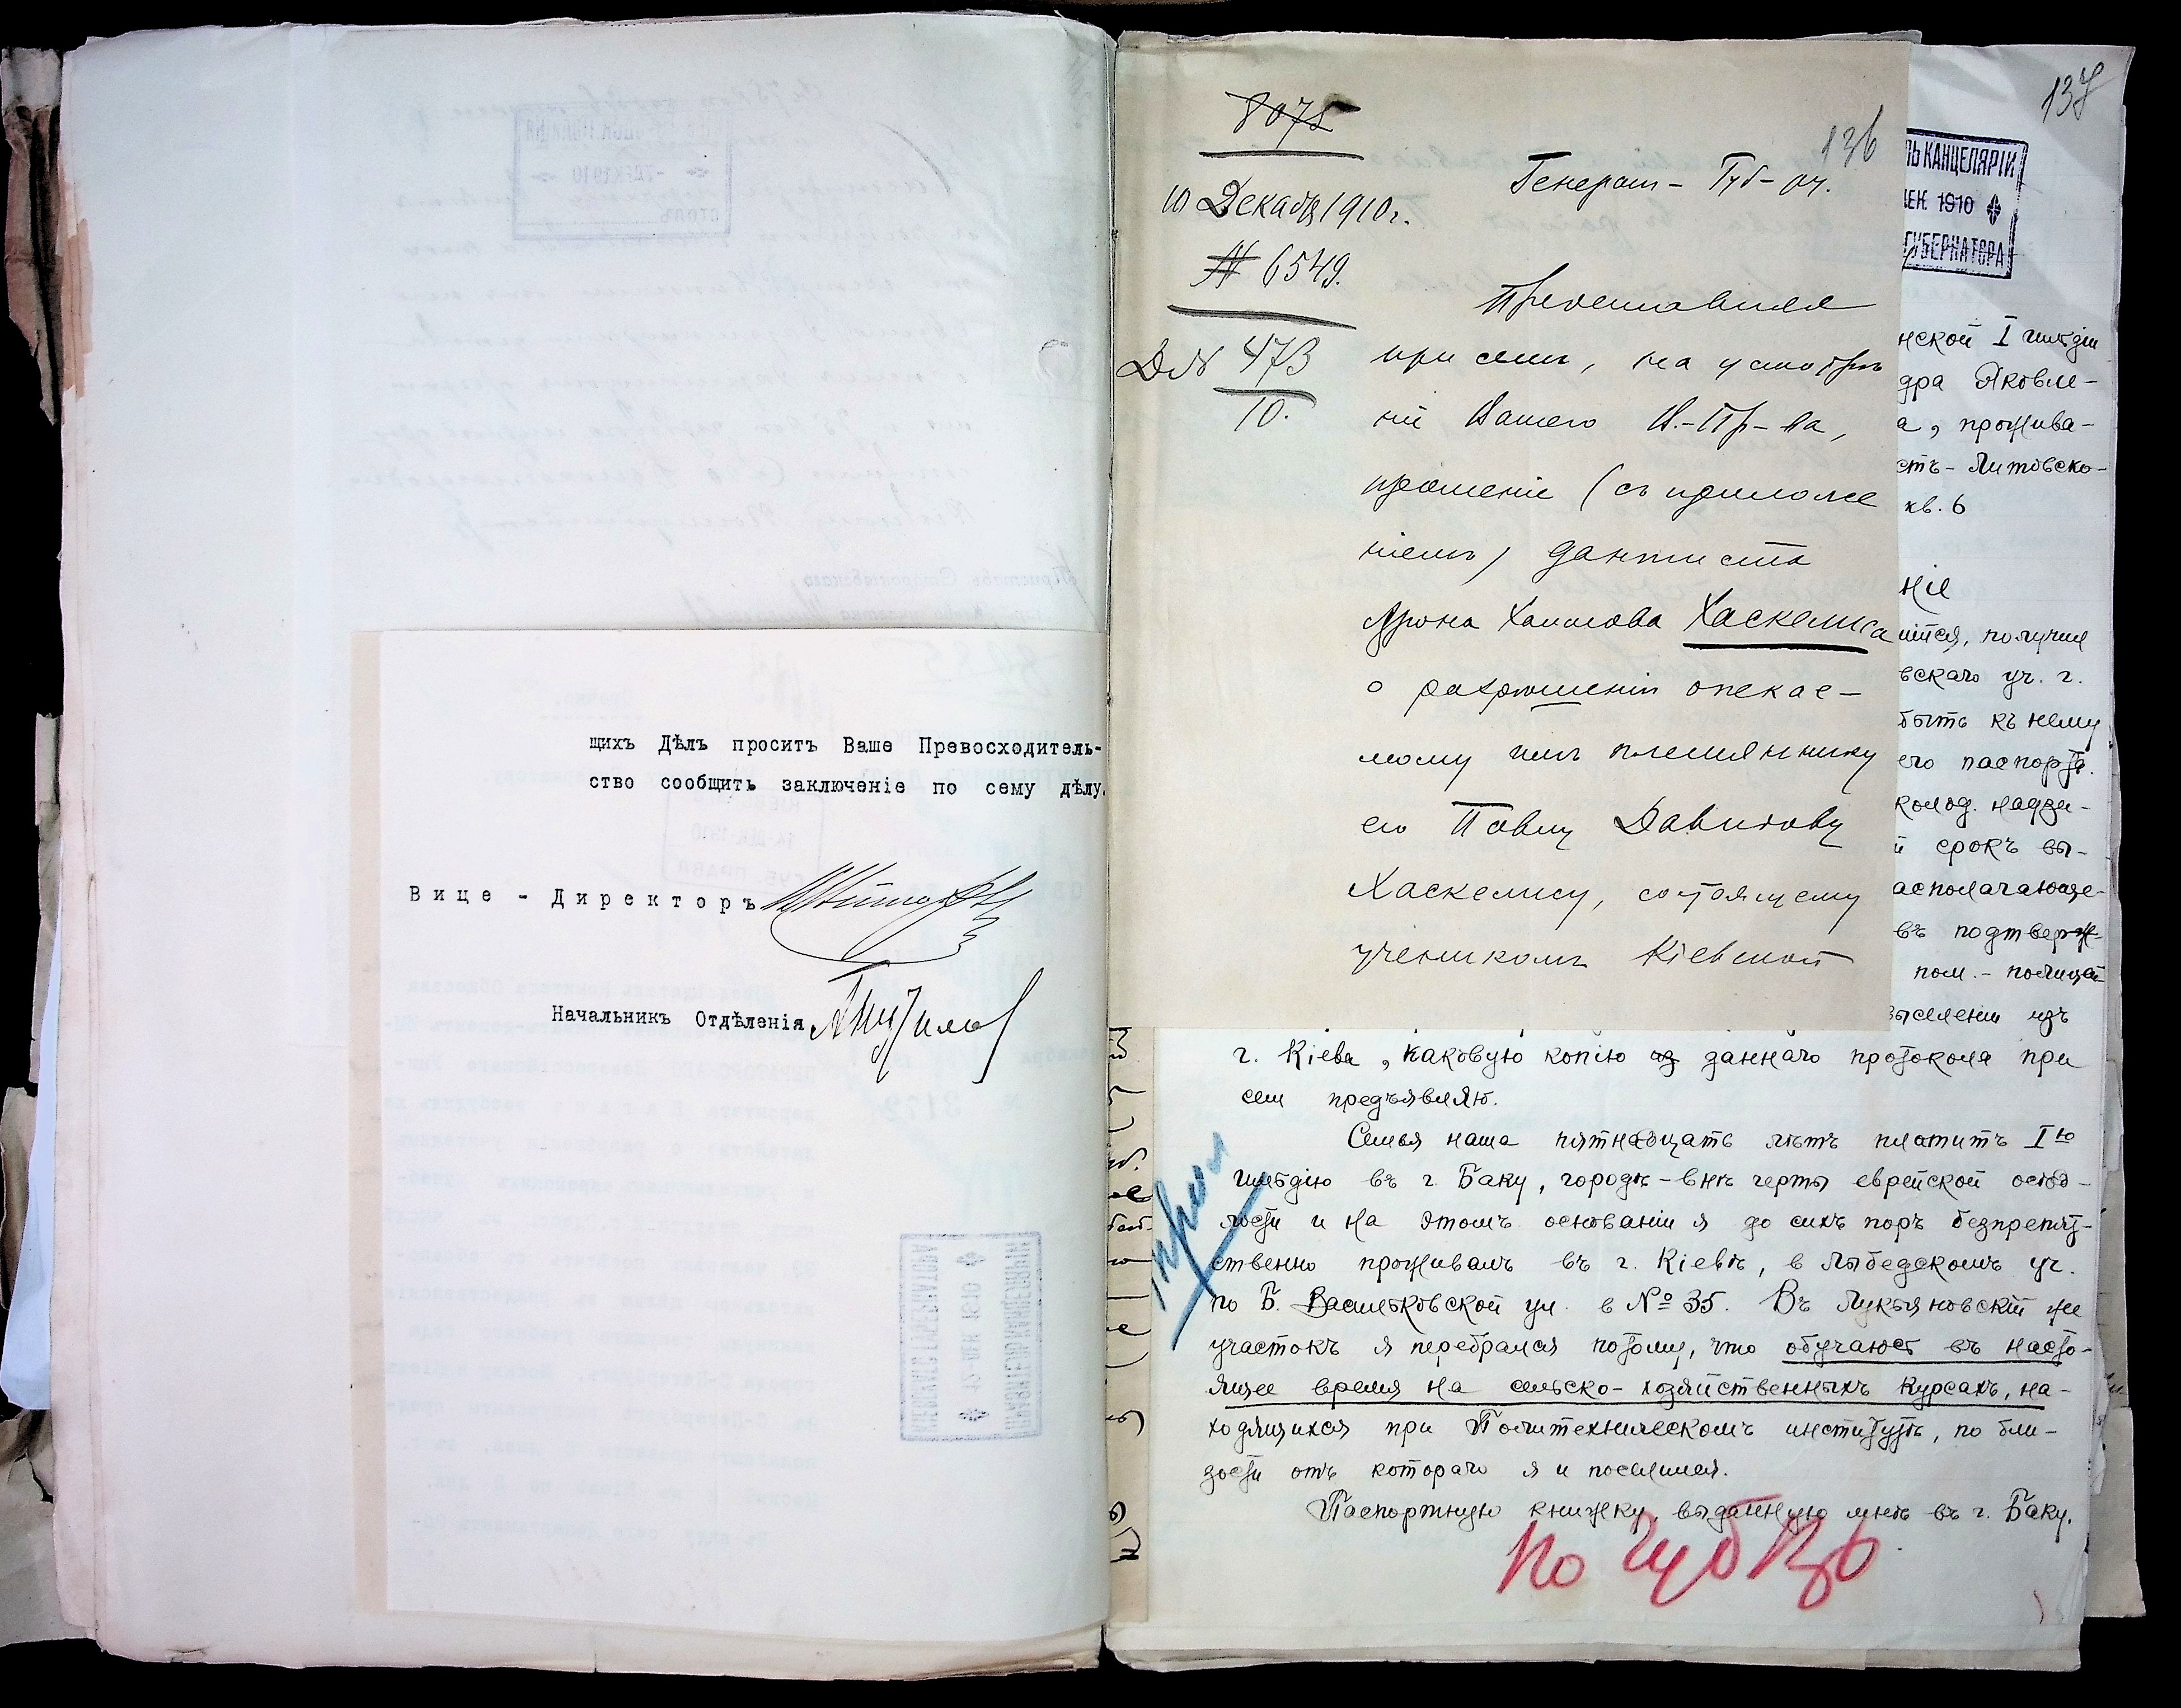 щихъ Дѣлъ проситъ Ваше Превосходитель-
ство сообщить заключеніе по сему дѣлу.
Вице - Директоръ
Начальникъ Отдѣленія
136
8075
10 Декабря 1910 г.
№ 6549.
Д № 473
10.
Генерал- Губ-ру.
Представляя
при семъ, на усмотрѣ
ніе Вашего В.-Пр-ва,
прошеніе (съ приложе
ніемъ) дантиста
Арона Хаимова Хаскелиса
о разрѣшеніи опекае-
мому имъ племяннику
его Павлу Давидову
Хаскелису, состоящему
ученикомъ Кіевской
137
ЛЬ КАНЦЕЛЯРІИ
ДЕК 1910
ГУБЕРНАТОРА
нской I гильдіи
дра Яковле-
а, прожива-
стъ-Литовско-
кв. 6
ніе
ійся, получив
вскаго уч. г.
быть къ нему
его паспорта.
колод. надзи-
й срокъ вы-
асполагающе-
въ подтверж-
пом. - полицей
выселеніи изъ
г. Кіева, каковую копію даннаго протокола при
сем предъявляю.
Семья наша пятнадцать лѣтъ платитъ I ю
гильдію въ г. Баку, городѣ-внѣ черты еврейской осѣд-
лости и на этомъ основаніи я до сихъ поръ безпрепят-
ственно проживалъ въ г. Кіевѣ, в Лыбедскомъ уч.
по Б. Васильковской ул. в № 35. Въ Лукьяновскій же
участокъ я перебрался потому, что обучаюсь въ насто-
ящее время на сельско-хозяйственныхъ курсахъ, на-
ходящихся при Политехническомъ институтѣ, по бли-
зости отъ котораго я и поселился.
Паспортную книжку, выданную мнѣ въ г. Баку.
КІЕВСКАГО ГУБЕРНАТОРА
12 ДЕК 1910
ПРАВИТЕЛЬ КАНЦЕЛЯРІИ